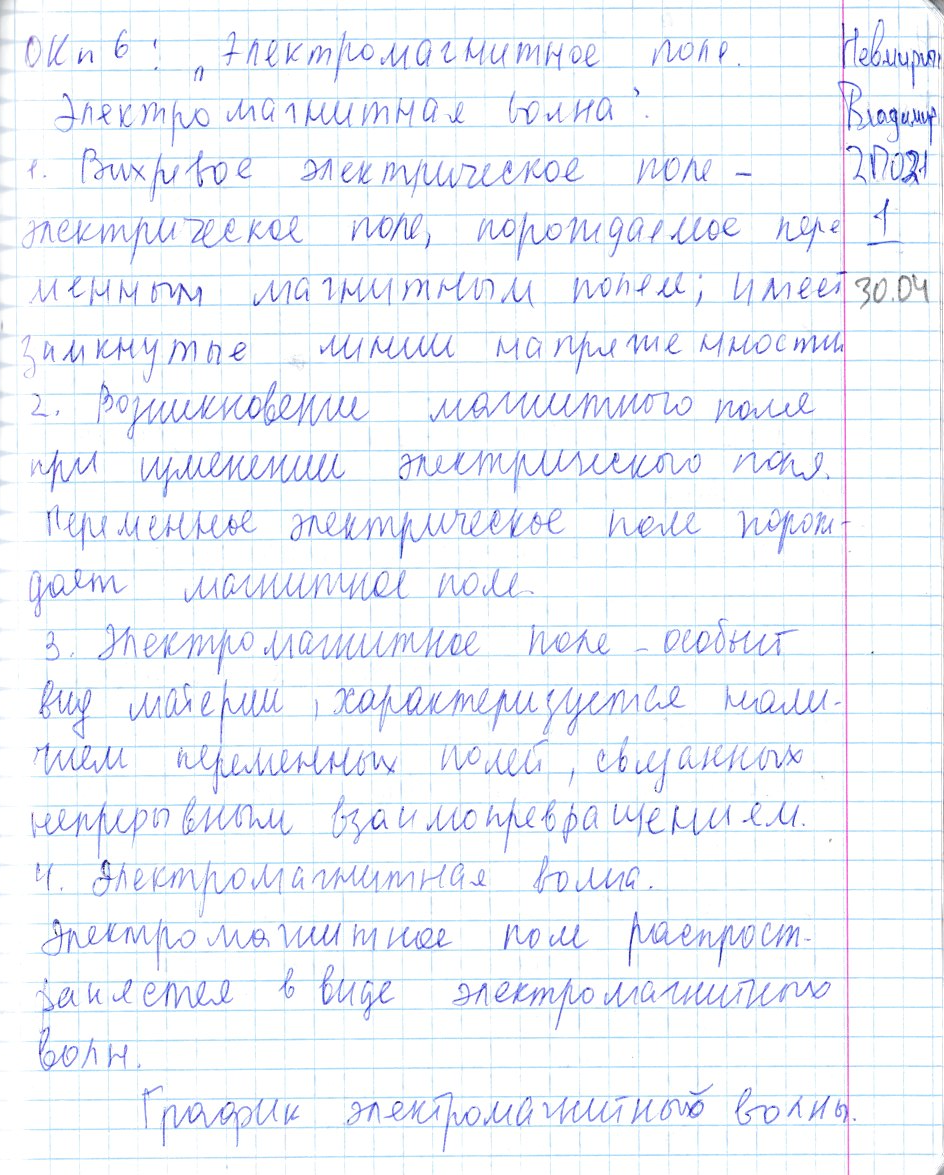 ОКп 6: „Электромагнитное поле.
Электромагнитная волна".
1. Вихревое электрическое поле –
электрическое поле, порождаемое пере
менным магнитным полем; имеет
замкнутые линии напряженности
2. Возникновение магнитного поля
при изменении электрического поля.
Переменное электрическое поле порож-
дает магнитное поле.
3. Электромагнитное поле – особый
вид материи, характеризуется нали-
чием переменных полей, связанных
непрерывным взаимопревращением.
4. Электромагнитная волна.
Электромагнитное поле распрост-
раняется в виде электромагнитных
волн.
График электромагнитной волны.
Владимир
2П021
1
30.04